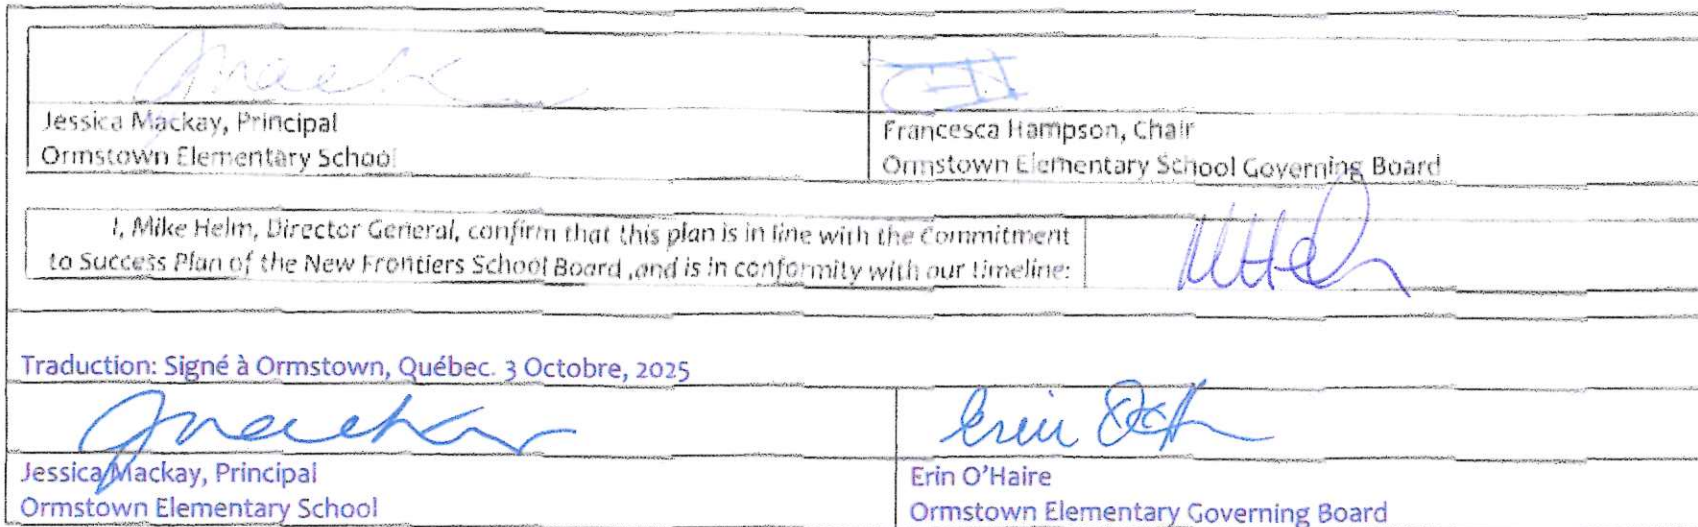 Jessica Mackay, Principal
Ormstown Elementary School
Francesca Hampson, Chair
Ormstown Elementary School Governing Board
I, Mike Helm, Director General, confirm that this plan is in line with the Commitment
to Success Plan of the New Frontiers School Board ,and is in conformity with our timeline:
Traduction: Signé à Ormstown, Québec. 3 Octobre, 2025
Jessica Mackay, Principal
Ormstown Elementary School
Erin O'Haire
Ormstown Elementary Governing Board